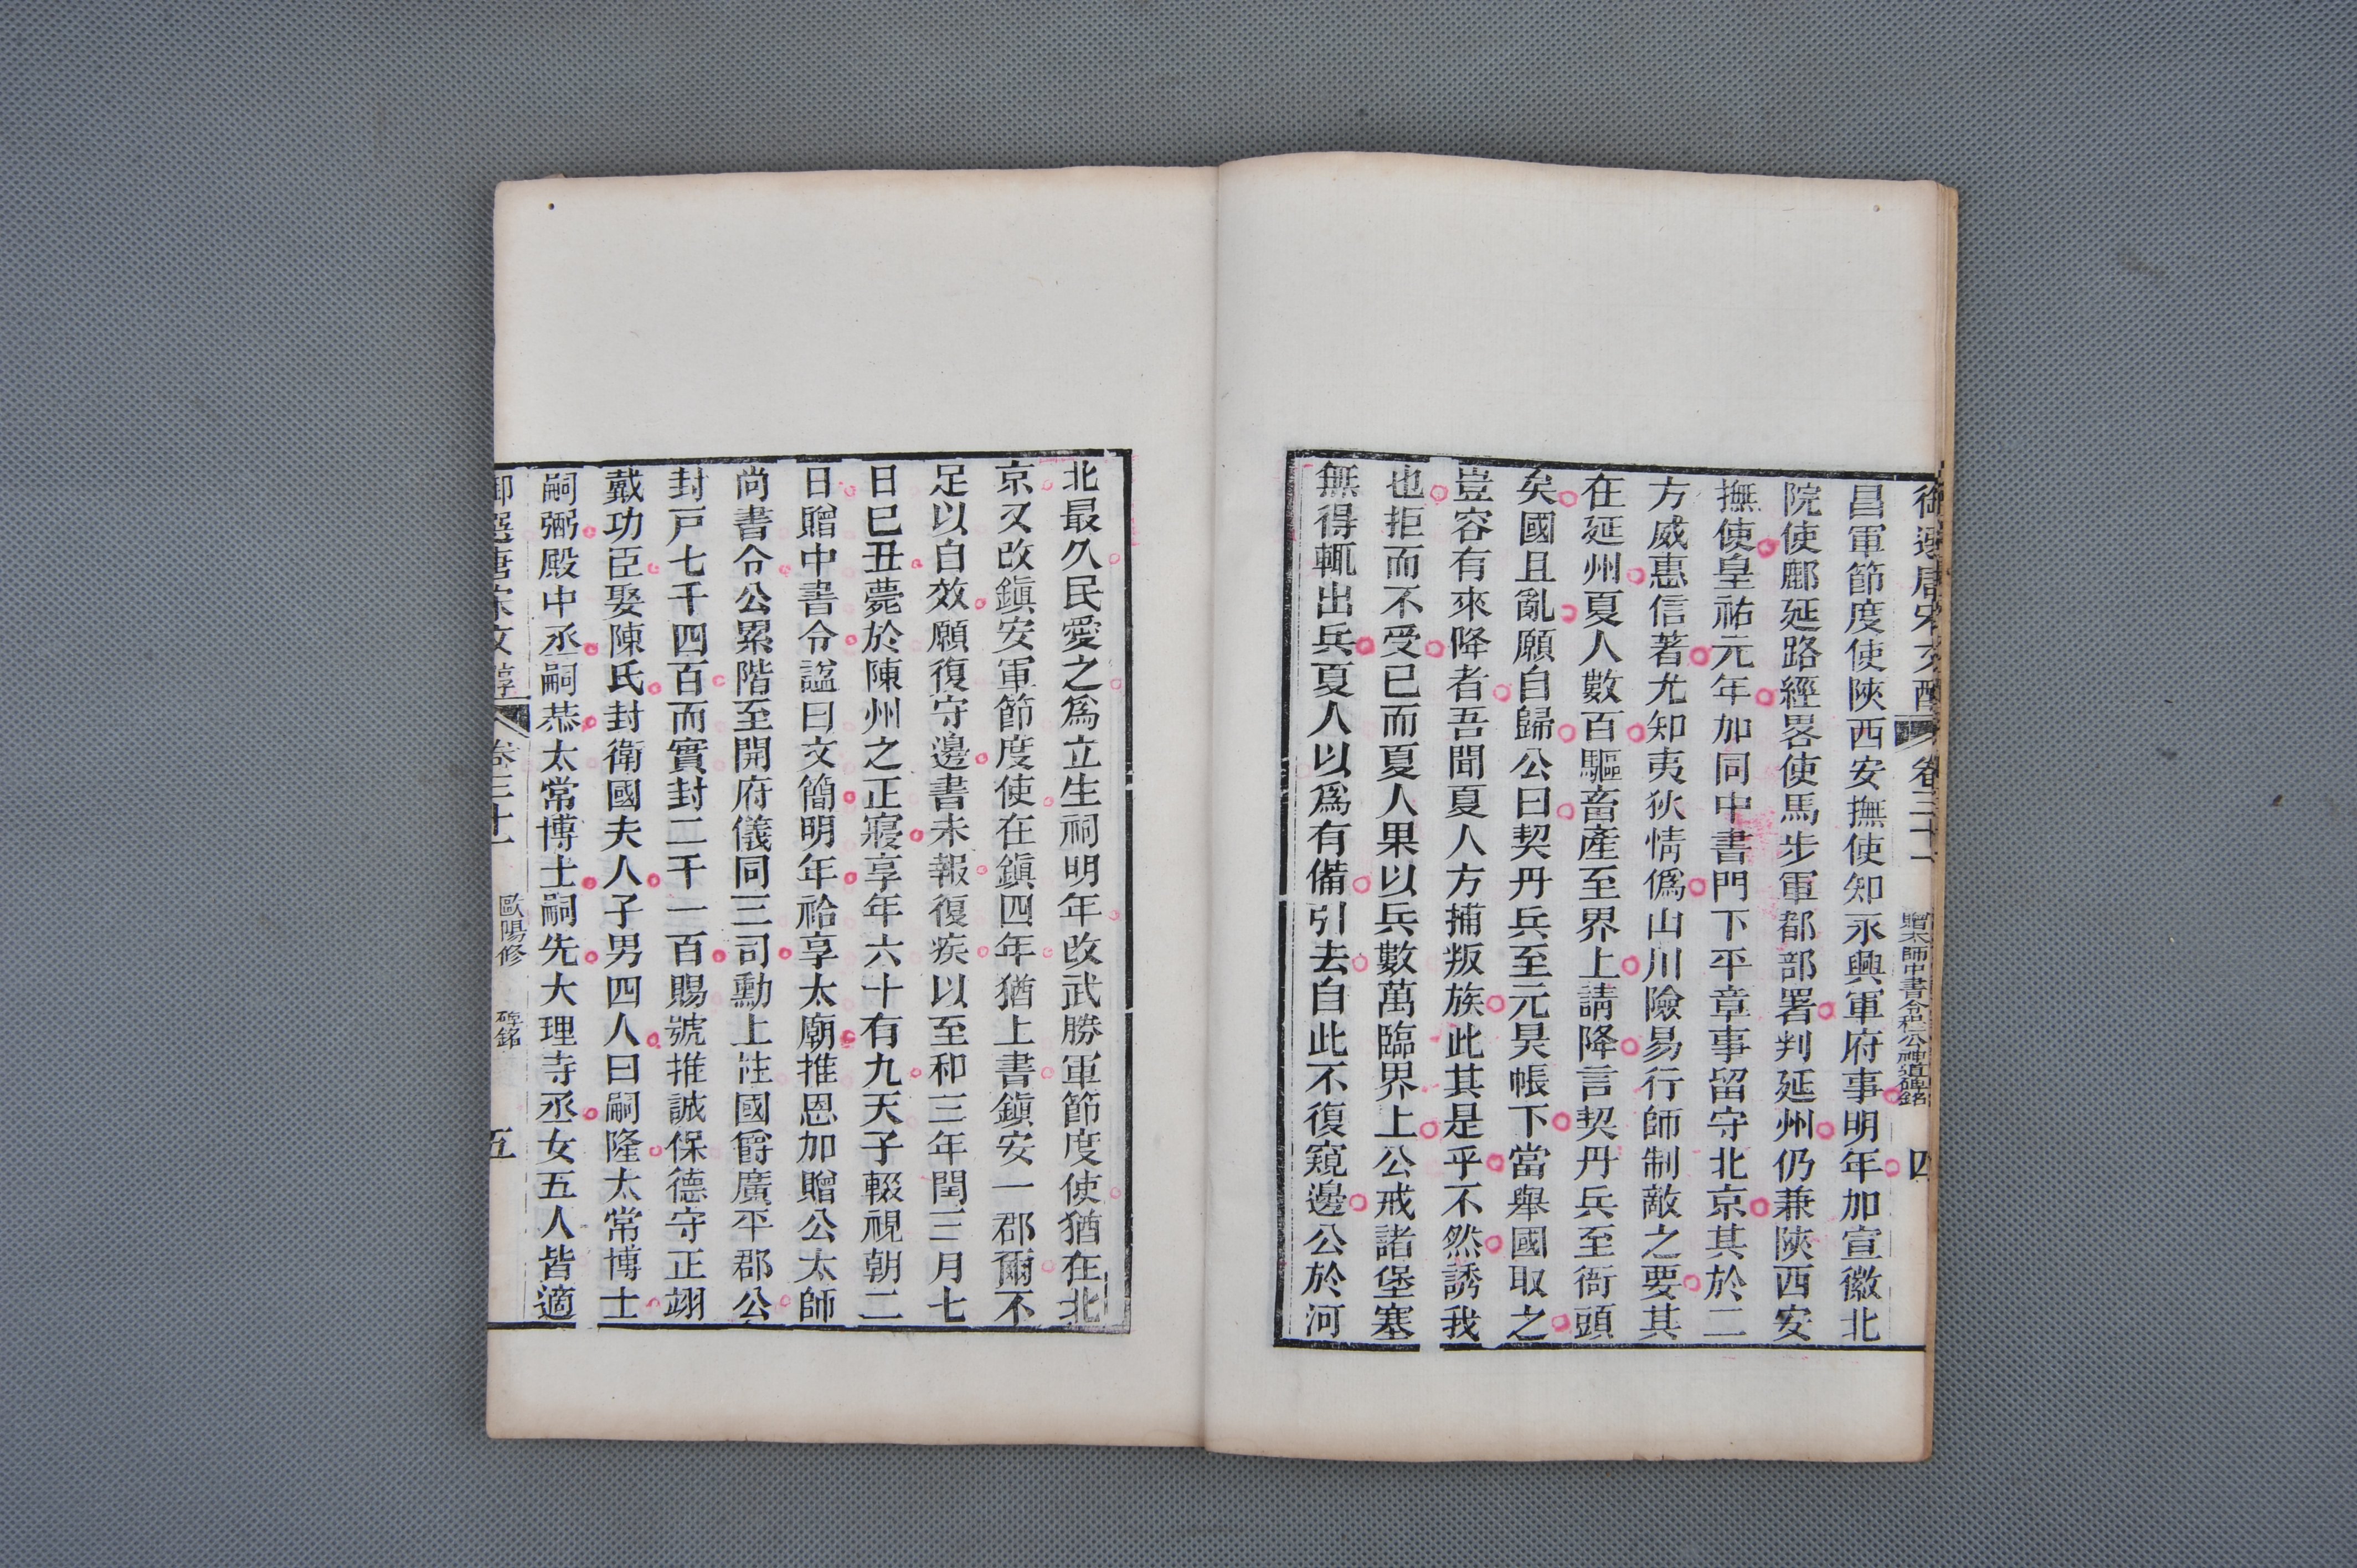 御選唐宋文醇 卷三十一 贈太師中書令程公神道碑銘 四
昌軍節度使陝西安撫使知永興軍府事明年加宣徽北
院使鄜延路經畧使馬步軍都部署判延州仍兼陝西安
撫使皇祐元年加同中書門下平章事留守北京其於二
方威惠信著尤知夷狄情僞山川險易行師制敵之要其
在延州夏人數百驅畜產至界上請降言契丹兵至衙頭
矣國且亂願自歸公曰契丹兵至元昊帳下當舉國取之
豈容有來降者吾聞夏人方捕叛族此其是乎不然誘我
也拒而不受已而夏人果以兵數萬臨界上公戒諸堡塞
無得輒出兵夏人以爲有備引去自此不復窺邊公於河
北最久民愛之爲立生祠明年改武勝軍節度使猶在北
京又改鎭安軍節度使在鎭四年猶上書鎭安一郡爾不
足以自效願復守邊書未報復疾以至和三年閏三月七
日巳丑薨於陳州之正寢享年六十有九天子輟視朝二
日贈中書令謚曰文簡明年祫享太廟推恩加贈公太師
尚書令公累階至開府儀同三司勳上柱國爵廣平郡公
封戸七千四百而實封二千一百賜號推誠保德守正翊
戴功臣娶陳氏封衛國夫人子男四人曰嗣隆太常博士
嗣弼殿中丞嗣恭太常博士嗣先大理寺丞女五人皆適
御選唐宋文醇 卷三十一 歐陽修 碑銘 五